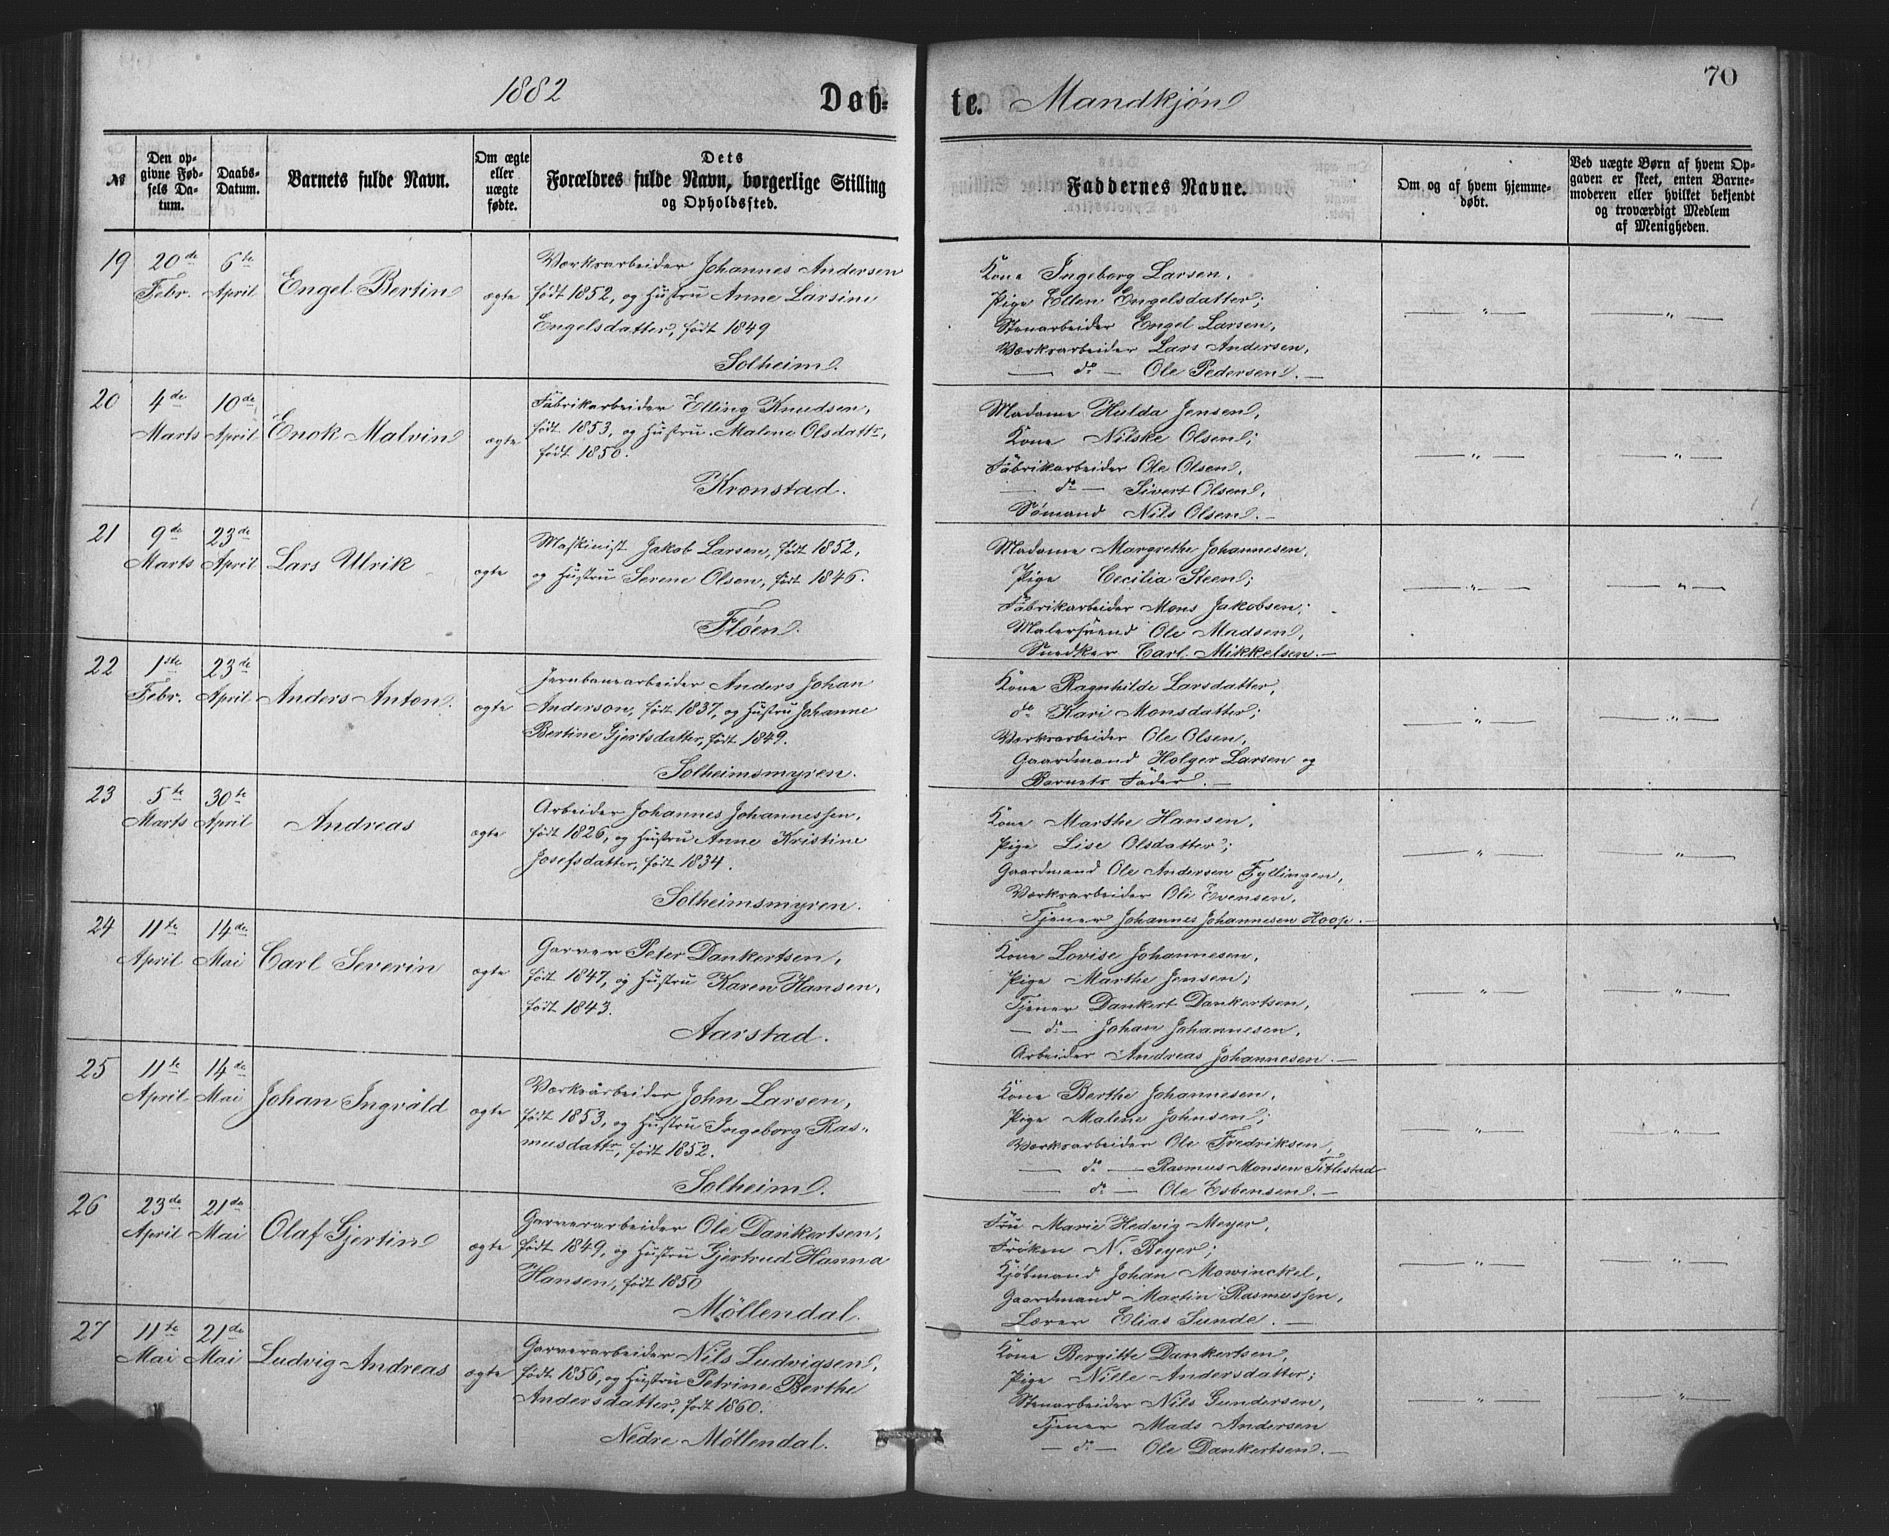 1882
Døb-
te.
Mandkjøn
70
№
Den op-
givne Fød-
sels Da-
tum.
Daabs-
Datum.
Barnets fulde Navn.
Om ægte
eller
uægte
fødte.
Dets
Forældres fulde Navn, borgerlige Stilling
og Opholdssted.
Faddernes Navne.
Om og af hvem hjemme-
døbt.
Ved uægte Børn af hvem Op-
gaven er skeet, enten Barne-
moderen eller hvilket bekjendt
og troværdigt Medlem
af Menigheden.
19
20de
Febr.
6te
April
Engel Bertin
ægte
Værksarbeider Johannes Andersen
født 1852, og Hustru Anne Larsine
Engelsdatter, født 1849
Solheim.
Kone Ingeborg Larsen,
Pige Ellen Engelsdatter;
Stenarbeider Engel Larsen,
Værksarbeider Lars Andersen,
— do — Ole Pedersen. —
— " —
— " —
20
4de
Marts
10de
April
Enok Malvin
ægte
Fabrikarbeider Elling Knudsen,
født 1853, og Hustru Malene Olsdattr,
født 1850.
Kronstad.
Madame Hulda Jensen,
Kone Nilske Olsen;
Fabrikarbeider Ole Olsen,
— do — Sivert Olsen,
Sømand Nils Olsen. —
— " —
— " —
21
9de
Marts
23de
April
Lars Ulrik
ægte
Maskinist Jakob Larsen, født 1852,
og Hustru Serene Olsen, født 1846.
Fløen.
Madame Margrethe Johannesen,
Pige Cecilia Steen;
Fabrikarbeider Mons Jakobsen,
Malersvend Ole Madsen,
Snedker Carl Mikkelsen. —
— " —
— " —
22
1ste
Febr.
23de
April
Anders Anton.
ægte
Jernbanearbeider Anders Johan
Anderson, født 1837, og Hustru Johanne
Bertine Gjertsdatter, født 1849.
Solheimsmyren.
Kone Ragnhilde Larsdatter,
do Kari Monsdatter;
Værksarbeider Ole Olsen,
Gaardmand Holger Larsen og
Barnets Fader. —
— " —
— " —
23
5te
Marts
30te
April
Andreas
ægte
Arbeider Johannes Johannessen,
født 1826, og Hustru Anne Kristine
Josefsdatter, født 1834.
Solheimsmyren.
Kone Marthe Hansen,
Pige Lise Olsdatter;
Gaardmand Ole Andersen Fyllingen,
Værksarbeider Ole Evensen,
Tjener Johannes Johannesen Hoop. —
— " —
— " —
24
11te
April
14de
Mai
Carl Severin
ægte
Garver Peter Dankertsen,
født 1847, og Hustru Karen Hansen,
født 1843.
Aarstad.
Kone Lovise Johannesen,
Pige Marthe Jensen;
Tjener Dankert Dankertsen,
— do — Johan Johannesen,
Arbeider Andreas Johannesen. —
— " —
— " —
25
11te
April
14de
Mai
Johan Ingvald
ægte
Værksarbeider John Larsen,
født 1853, og Hustru Ingeborg Ras-
musdattr, født 1852.
Solheim.
Kone Berthe Johannesen,
Pige Malene Johnsen;
Værksarbeider Ole Fredriksen,
— do — Rasmus Monsen Titlestad
— do — Ole Esbensen. —
— " —
— " —
26
23de
April
21de
Mai
Olaf Gjertin
ægte
Garverarbeider Ole Dankertsen,
født 1849, og Hustru Gjertrud Hanna
Hansen, født 1850
Møllendal.
Fru Marie Hedvig Meyer,
Frøken N. Beyer;
Kjøbmand Johan Mowinckel,
Gaardmand Martin Rasmussen,
Lærer Elias Sunde. —
— " —
— " —
27
11te
Mai
21de
Mai
Ludvig Andreas
ægte
Garverarbeider Nils Ludvigsen,
født 1856, og Hustru Petrine Berthe
Andersdatter, født 1860.
Nedre Møllendal.
Kone Bergitte Dankertsen,
Pige Nille Andersdatter;
Stenarbeider Nils Gundersen,
Tjener Mads Andersen
— do — Ole Dankertsen. —
— " —
— " —